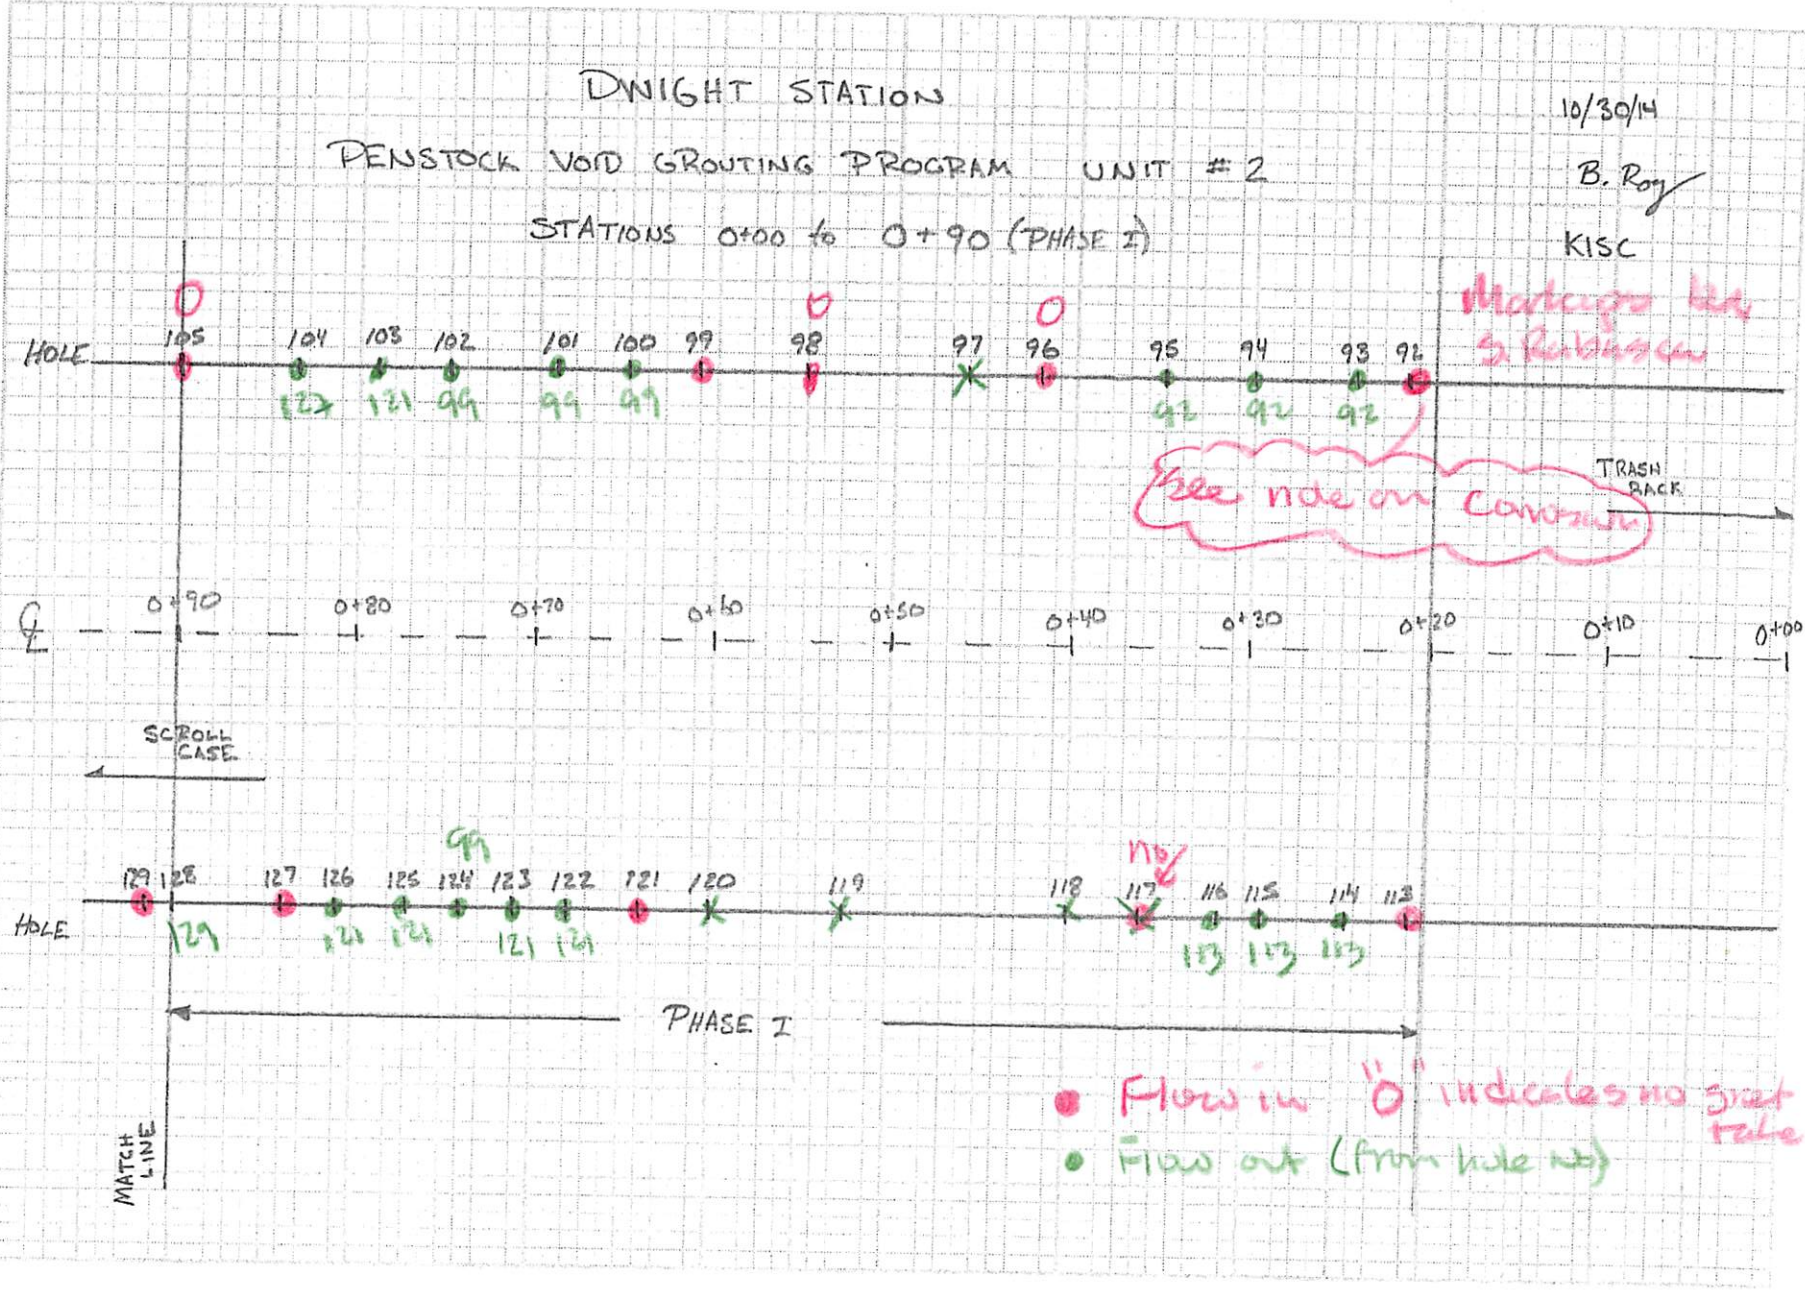 DWIGHT STATION
10/30/14
PENSTOCK VOID GROUTING PROGRAM UNIT # 2
B. Roy
STATIONS 0+00 to 0+90 (PHASE I)
KISC
Markups
O O O
105 104 103 102 101 100 99 98 97 96 95 94 93 92
HOLE
127 121 99 99 99 92 92 92
See note on
TRASH
RACK
0+90 0+80 0+70 0+60 0+50 0+40 0+30 0+20 0+10 0+00
CL
SCROLL
CASE
99
no
129 128 127 126 125 124 123 122 121 120 119 118 117 116 115 114 113
HOLE
129 121 121 121 121 113 113 113
PHASE I
Flow in "O" indicates no grout
take
Flow out (from hole no)
MATCH
LINE